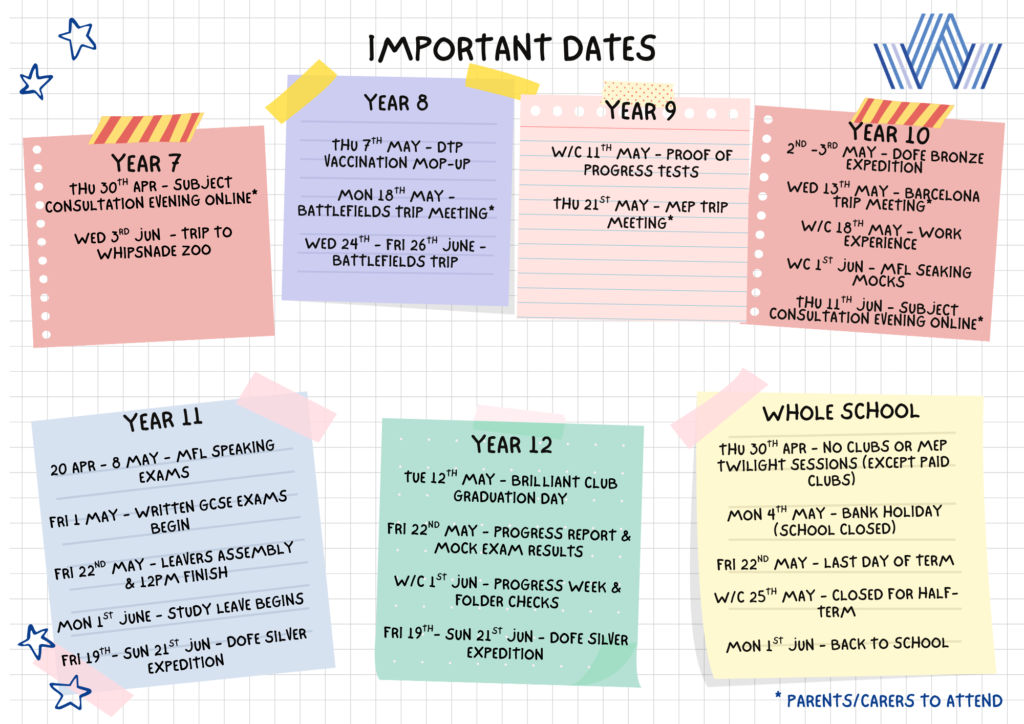 IMPORTANT DATES
YEAR 7
THU 30TH APR - SUBJECT
CONSULTATION EVENING ONLINE*
WED 3RD JUN - TRIP TO
WHIPSNADE ZOO
YEAR 8
THU 7TH MAY - DTP
VACCINATION MOP-UP
MON 18TH MAY -
BATTLEFIELDS TRIP MEETING*
WED 24TH - FRI 26TH JUNE -
BATTLEFIELDS TRIP
YEAR 9
W/C 11TH MAY - PROOF OF
PROGRESS TESTS
THU 21ST MAY - MEP TRIP
MEETING*
YEAR 10
2ND -3RD MAY - DOFE BRONZE
EXPEDITION
WED 13TH MAY - BARCELONA
TRIP MEETING*
W/C 18TH MAY - WORK
EXPERIENCE
WC 1ST JUN - MFL SEAKING
MOCKS
THU 11TH JUN - SUBJECT
CONSULTATION EVENING ONLINE*
YEAR 11
20 APR - 8 MAY - MFL SPEAKING
EXAMS
FRI 1 MAY - WRITTEN GCSE EXAMS
BEGIN
FRI 22ND MAY - LEAVERS ASSEMBLY
& 12PM FINISH
MON 1ST JUNE - STUDY LEAVE BEGINS
FRI 19TH- SUN 21ST JUN - DOFE SILVER
EXPEDITION
YEAR 12
TUE 12TH MAY - BRILLIANT CLUB
GRADUATION DAY
FRI 22ND MAY - PROGRESS REPORT &
MOCK EXAM RESULTS
W/C 1ST JUN - PROGRESS WEEK &
FOLDER CHECKS
FRI 19TH- SUN 21ST JUN - DOFE SILVER
EXPEDITION
WHOLE SCHOOL
THU 30TH APR - NO CLUBS OR MEP
TWILIGHT SESSIONS (EXCEPT PAID
CLUBS)
MON 4TH MAY - BANK HOLIDAY
(SCHOOL CLOSED)
FRI 22ND MAY - LAST DAY OF TERM
W/C 25TH MAY - CLOSED FOR HALF-
TERM
MON 1ST JUN - BACK TO SCHOOL
* PARENTS/CARERS TO ATTEND